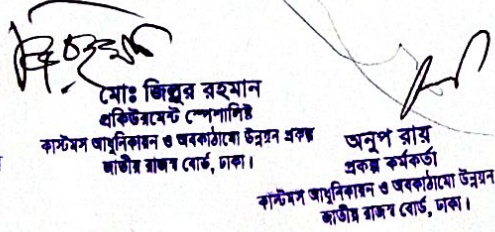 মোঃ জিল্লুর রহমান
প্রকিউরমেন্ট স্পেশালিষ্ট
কাস্টমস আধুনিকায়ন ও অবকাঠামো উন্নয়ন প্রকল্প
জাতীয় রাজস্ব বোর্ড, ঢাকা।
অনুপ রায়
প্রকল্প কর্মকর্তা
কাস্টমস আধুনিকায়ন ও অবকাঠামো উন্নয়ন
জাতীয় রাজস্ব বোর্ড, ঢাকা।